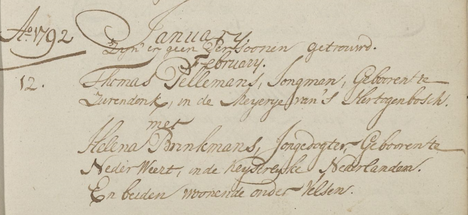 Ao. 1792 January.
Zijn er geen Persoonen getrouwd.
February.
12. Thomas Tellemans, Jongman, Geboren te
Zurendonk, in de Meyerye van 's Hertogenbosch.
met
Helena Brinkmans, Jongedogter, Geboren te
Neder Weert, in de Keyserlyke Nederlanden.
En beiden woonende onder Velsen.